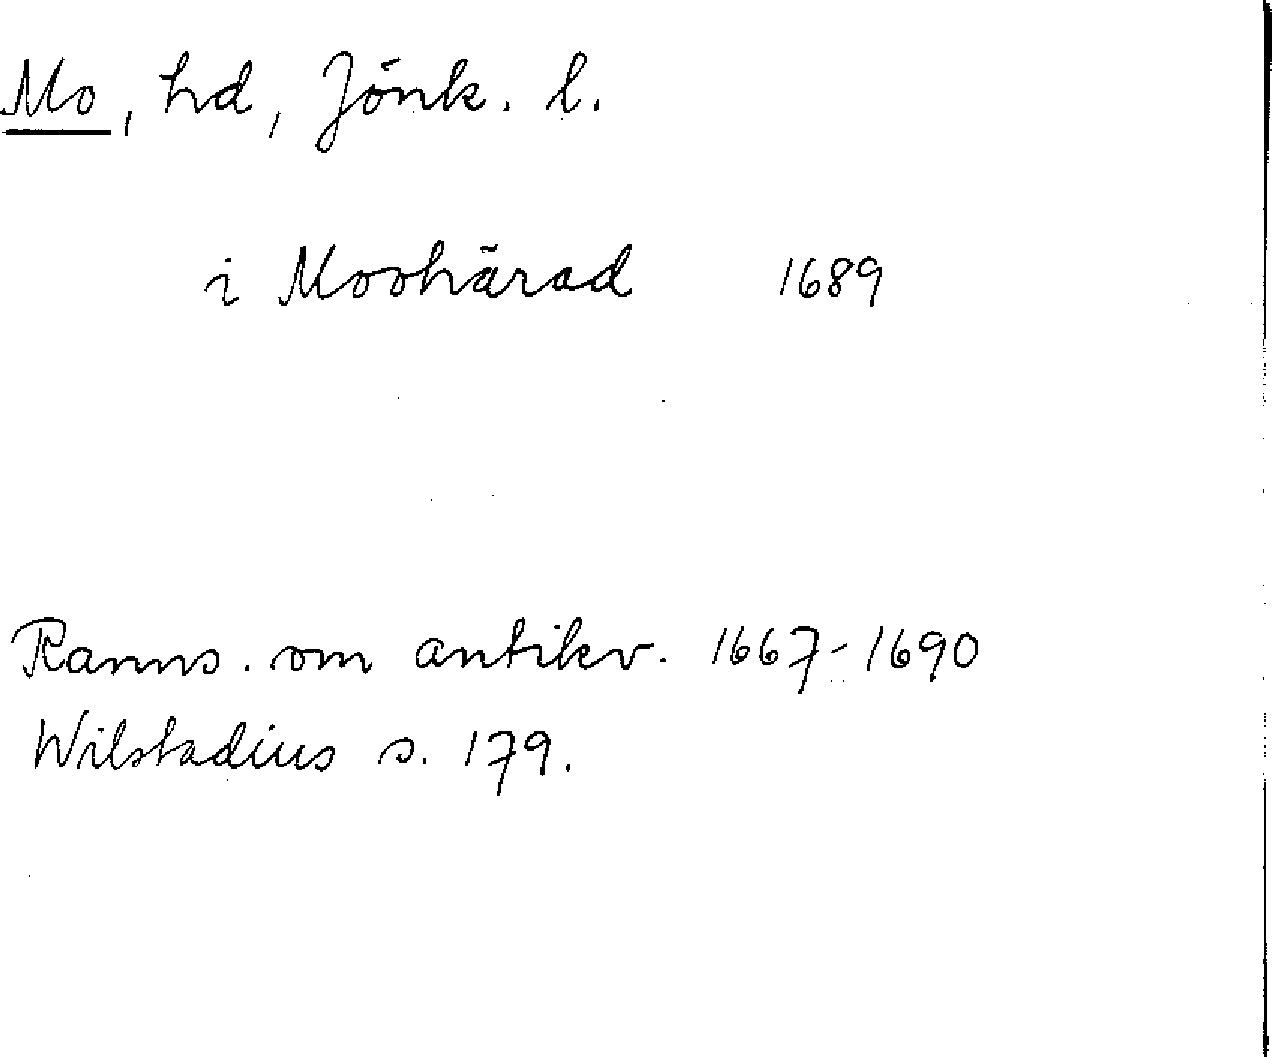 Mo, hd, Jönk. l.
i Moohärad 1689
Ranns. om antikv. 1667-1690
Wilstadius s. 179.